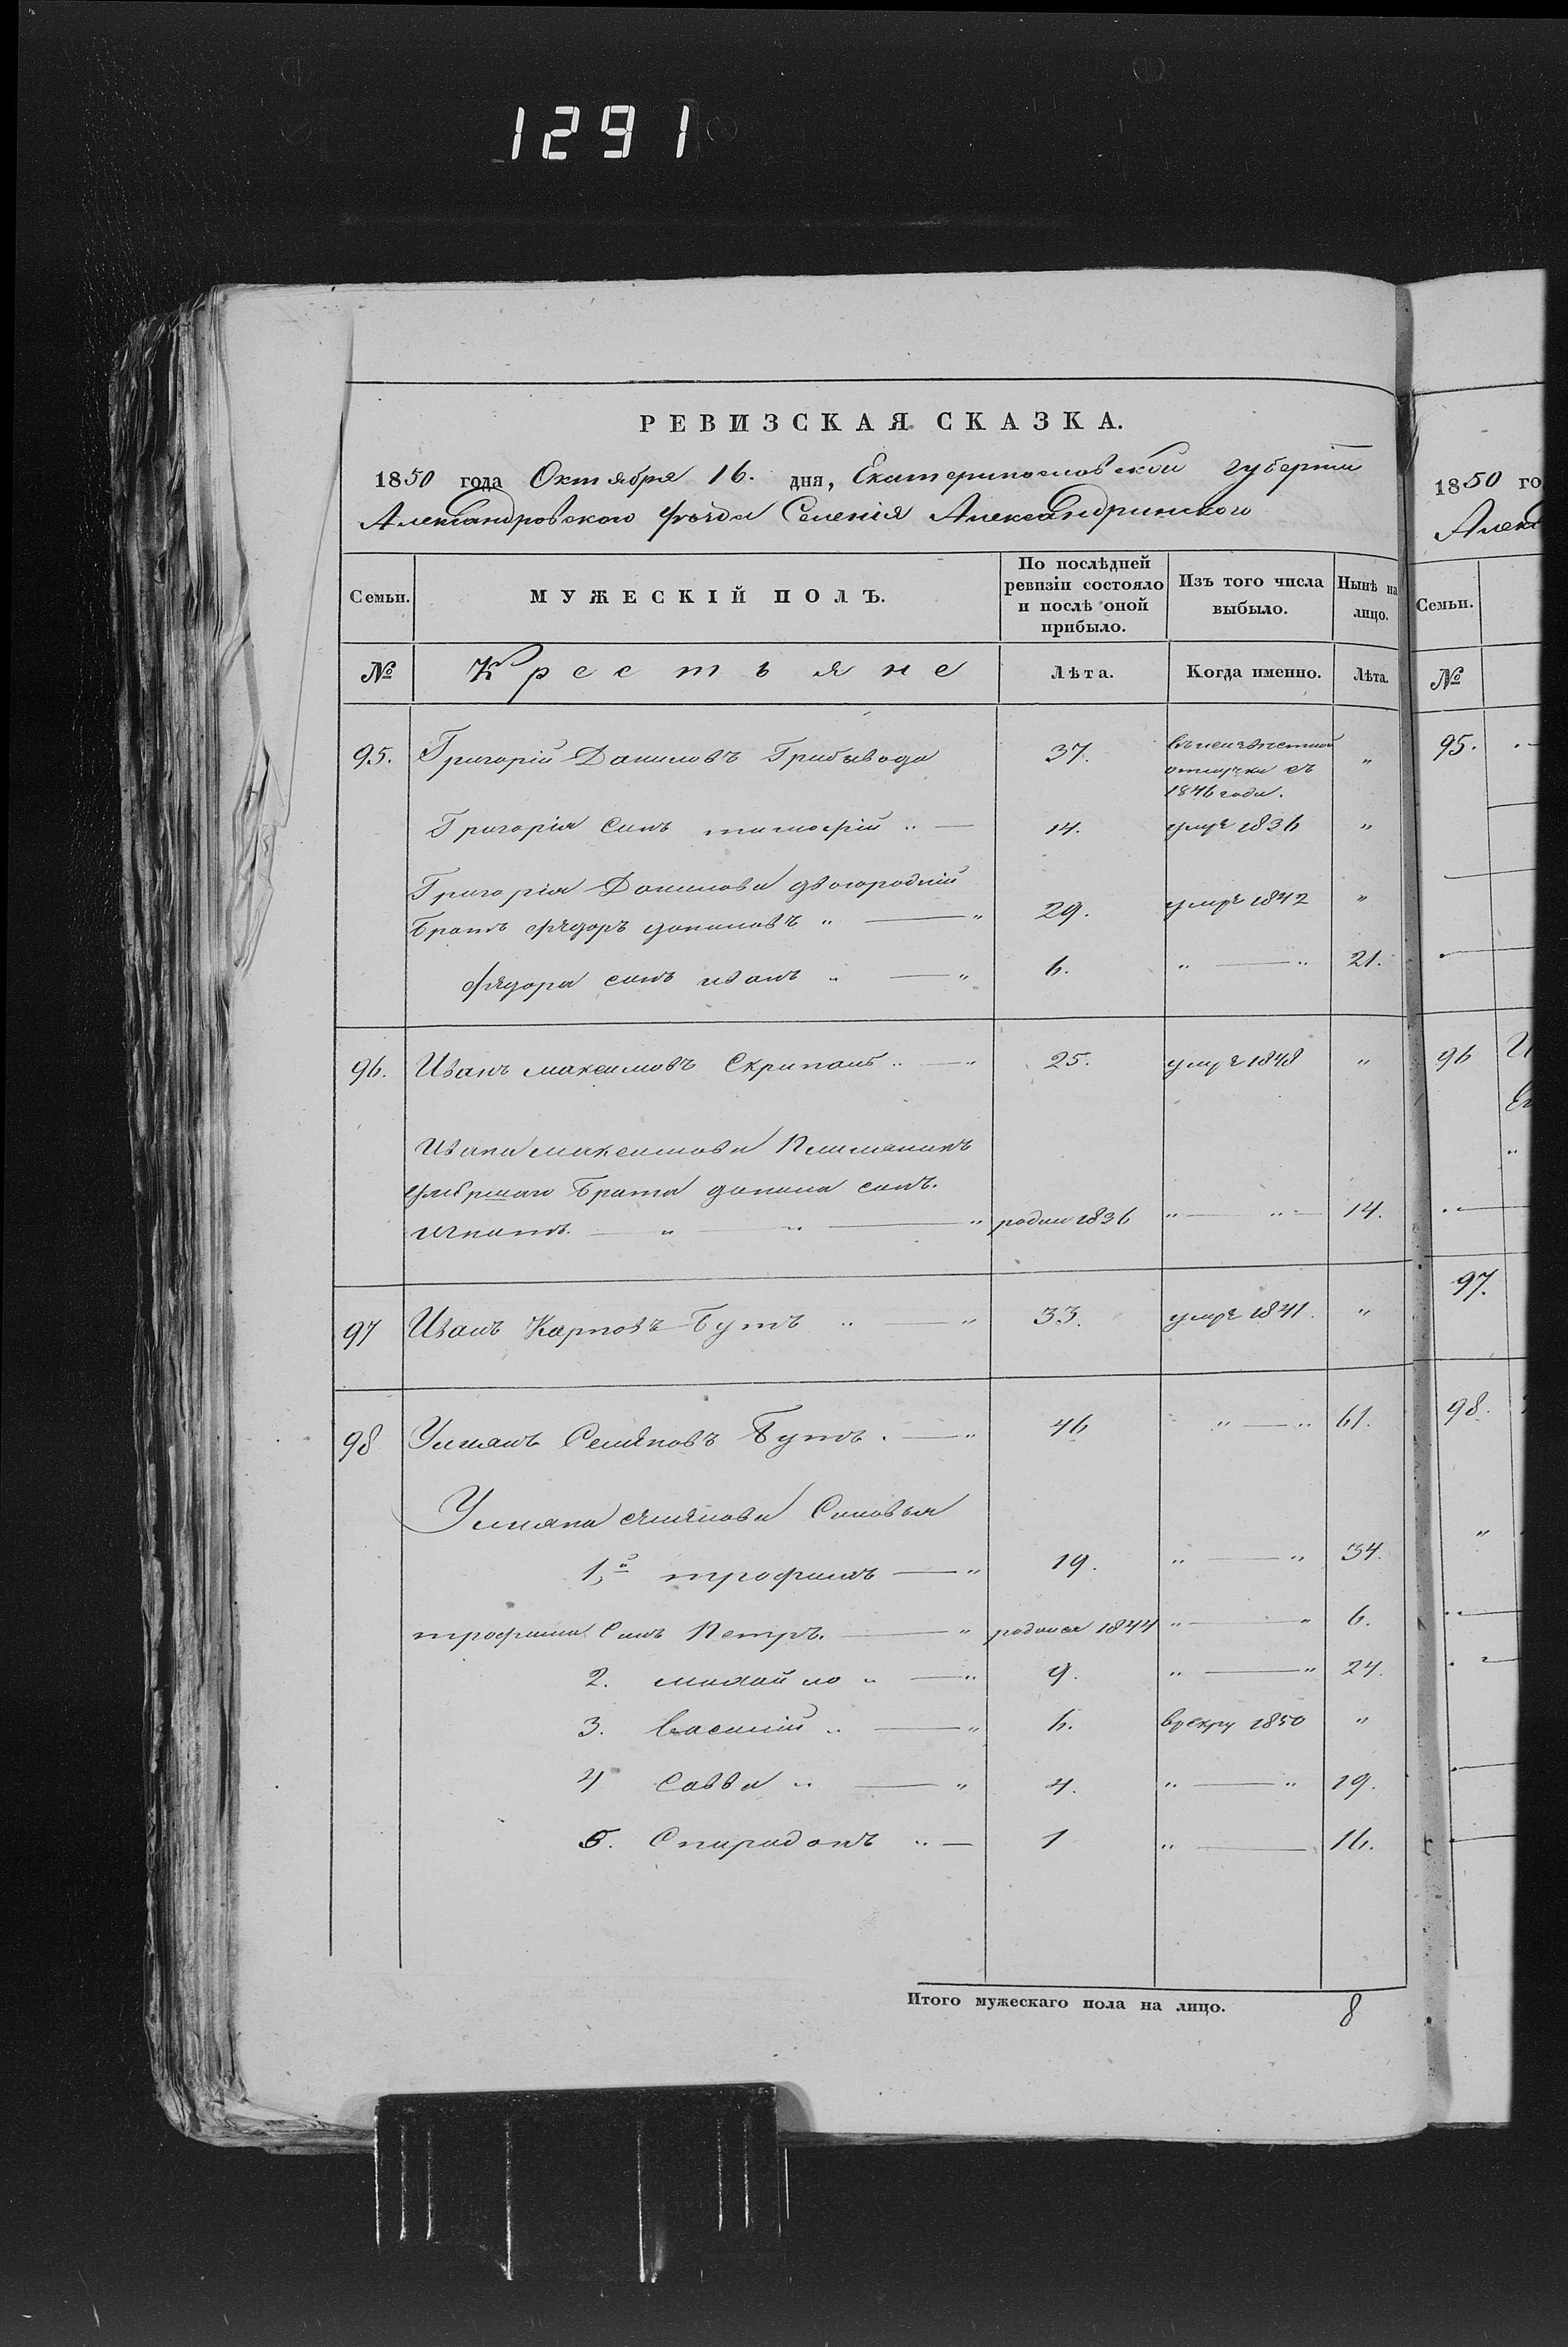 1291
РЕВИЗСКАЯ СКАЗКА.
1850 года Октября 16. дня, Екатеринославской губерніи
Александровского уѣзда Селенія Александринского
Семьи. МУЖЕСКІЙ ПОЛЪ. По послѣдней ревизіи состояло и послѣ оной прибыло. Изъ того числа выбыло. Нынѣ на лицо.
№ Крестьяне Лѣта. Когда именно. Лѣта.
95. Григорій Даниловъ 37. въ неизвѣстной отлучки съ 1846 года. "
Григорія синъ тимофій " — 14. умре 1836 "
Григорія Данилова двоюродній
Братъ фядоръ даниловъ " — " 29. умре 1842 "
фядора синъ иванъ " — " 6. " — " 21.
96. Иванъ максимовъ Скрипаль " — " 25. умре 1848 "
Ивана максимова Племяникъ
умершаго Брата данила синъ.
игнатъ. — " — " — " родил 1836 " — " — 14.
97 Иванъ Карповъ Бутъ " — " 33. умре 1841. "
98 Улиянъ Семяновъ Бутъ . — " 46 " — " 61.
Улияна Синовья
1,й трофимъ — " 19. " — " 34.
трофима Синъ Петръ. — " родился 1844 " — " 6.
2. михайло " — " 9. " — " 24.
3. Василій " — " 6. врекру 1850 "
4 Савва " — " 4. " — " 19.
5. Спиридонъ " — 1 " — 16.
Итого мужескаго пола на лицо. 8
1850 го
Алекс
Семьи.
№
95.
96
97.
98.